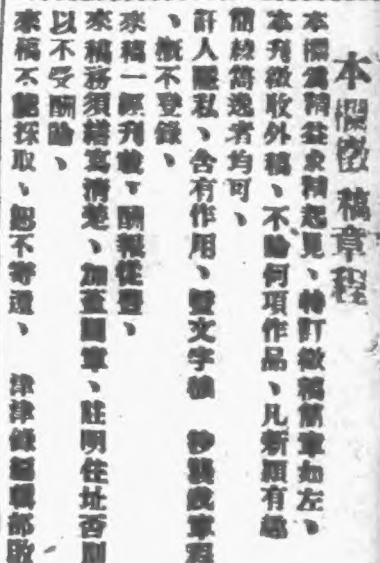 本欄徵稿章程
本欄為精益求精起見、特訂徵稿簡章如左、
本刊徵收外稿、不論何項作品、凡新穎有趣
簡潔雋逸者均可、
訐人隱私、含有作用、暨文字 抄襲或草率
、概不登錄、
來稿一經刊載、酬報從豐、
來稿務須繕寫清楚、加蓋圖章、註明住址否則
以不受酬論、
來稿不能採取、恕不寄還、 津津錄編輯部啟